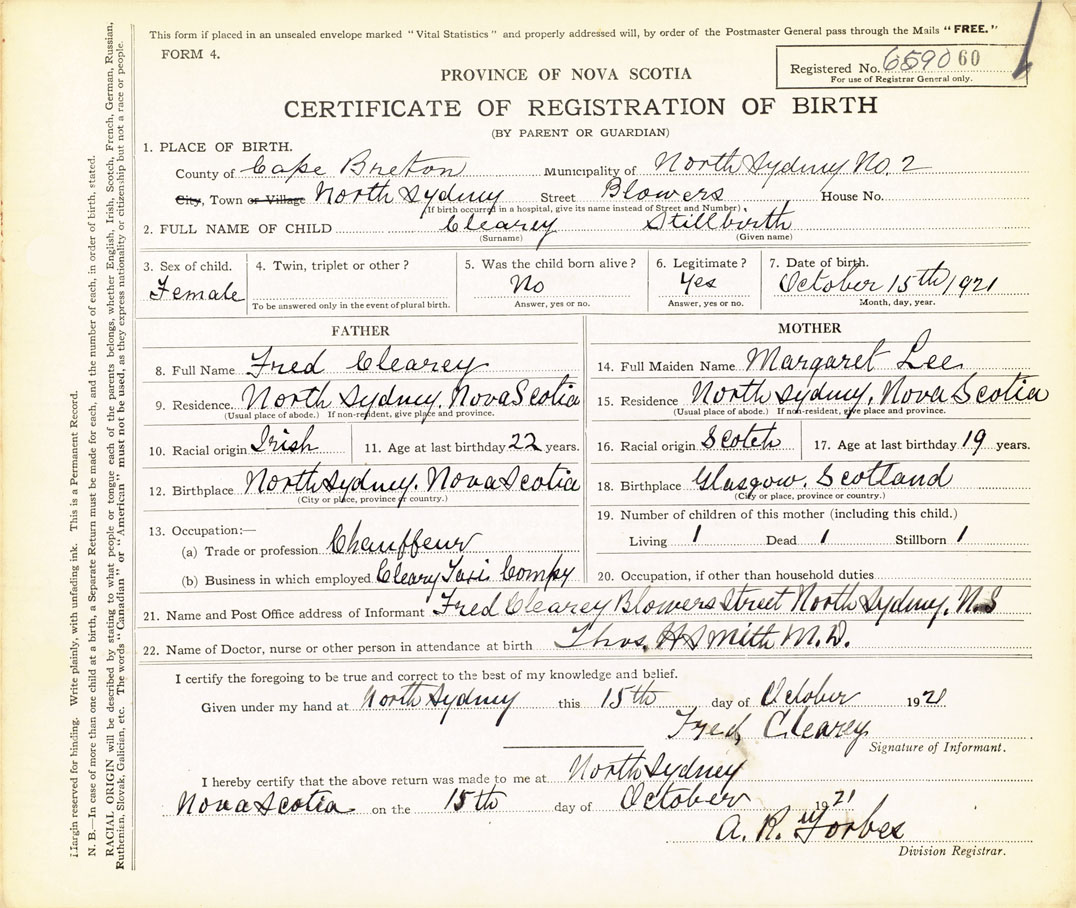 This form if placed in an unsealed envelope marked "Vital Statistics" and properly addressed will, by order of the Postmaster General pass through the Mails "FREE."
FORM 4.
Registered No. 659060
For use of Registrar General only.
PROVINCE OF NOVA SCOTIA
CERTIFICATE OF REGISTRATION OF BIRTH
(BY PARENT OR GUARDIAN)
1. PLACE OF BIRTH.
County of Cape Breton Municipality of North Sydney No. 2
City, Town or Village North Sydney Street Blowers House No.
(If birth occurred in a hospital, give its name instead of Street and Number)
2. FULL NAME OF CHILD Clearey Stillbirth
(Surname) (Given name)
3. Sex of child. 4. Twin, triplet or other? 5. Was the child born alive? 6. Legitimate? 7. Date of birth.
Female No Yes October 15th 1921
To be answered only in the event of plural birth. Answer, yes or no. Answer, yes or no. Month, day, year.
FATHER
8. Full Name Fred Clearey
9. Residence. North Sydney, Nova Scotia
(Usual place of abode.) If non-resident, give place and province.
10. Racial origin Irish 11. Age at last birthday 22 years.
12. Birthplace North Sydney. Nova Scotia
(City or place, province or country.)
13. Occupation:—
(a) Trade or profession Chauffeur
(b) Business in which employed Cleary Taxi Compy
MOTHER
14. Full Maiden Name Margaret Lee
15. Residence North Sydney, Nova Scotia
(Usual place of abode.) If non-resident, give place and province.
16. Racial origin Scotch 17. Age at last birthday 19 years.
18. Birthplace Glasgow. Scotland
(City or place, province or country.)
19. Number of children of this mother (including this child.)
Living 1 Dead 1 Stillborn 1
20. Occupation, if other than household duties
21. Name and Post Office address of Informant Fred Clearey Blowers Street North Sydney, N.S
22. Name of Doctor, nurse or other person in attendance at birth Thos. H Smith M.D.
I certify the foregoing to be true and correct to the best of my knowledge and belief.
Given under my hand at North Sydney this 15th day of October 1921
Fred Clearey
Signature of Informant.
I hereby certify that the above return was made to me at North Sydney
Nova Scotia on the 15th day of October 1921
A. R. Forbes
Division Registrar.
Margin reserved for binding. Write plainly, with unfading ink. This is a Permanent Record.
N. B.—In case of more than one child at a birth, a Separate Return must be made for each, and the number of each, in order of birth, stated.
RACIAL ORIGIN will be described by stating to what people or tongue each of the parents belongs, whether English, Irish, Scotch, French, German, Russian,
Ruthenian, Slovak, Galician, etc. The words "Canadian" or "American" must not be used, as they express nationality or citizenship but not a race or people.